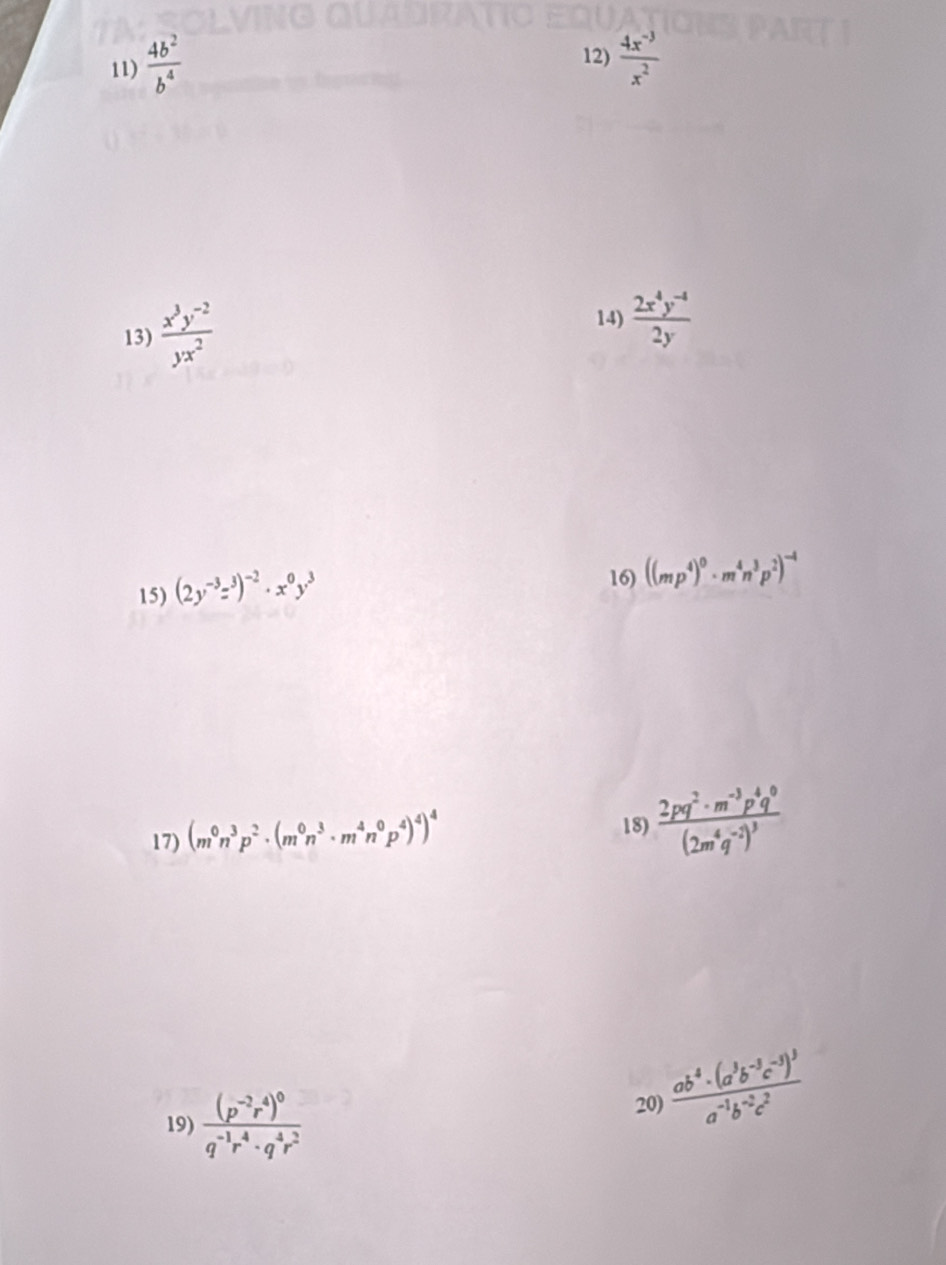 7A: SOLVING QUADRATIC EQUATIONS PART I
11) \frac{4b^2}{b^4}
12) \frac{4x^{-3}}{x^2}
13) \frac{x^3y^{-2}}{yx^2}
14) \frac{2x^4y^{-4}}{2y}
15) (2y^{-3}z^3)^{-2} · x^0y^3
16) ((mp^4)^0 · m^4n^3p^2)^{-4}
17) (m^0n^3p^2 · (m^0n^3 · m^4n^0p^4)^4)^4
18) \frac{2pq^2 · m^{-3}p^4q^0}{(2m^4q^{-2})^3}
19) \frac{(p^{-2}r^4)^0}{q^{-1}r^4 · q^4r^2}
20) \frac{ab^4 · (a^3b^{-3}c^{-3})^3}{a^{-1}b^{-2}c^2}